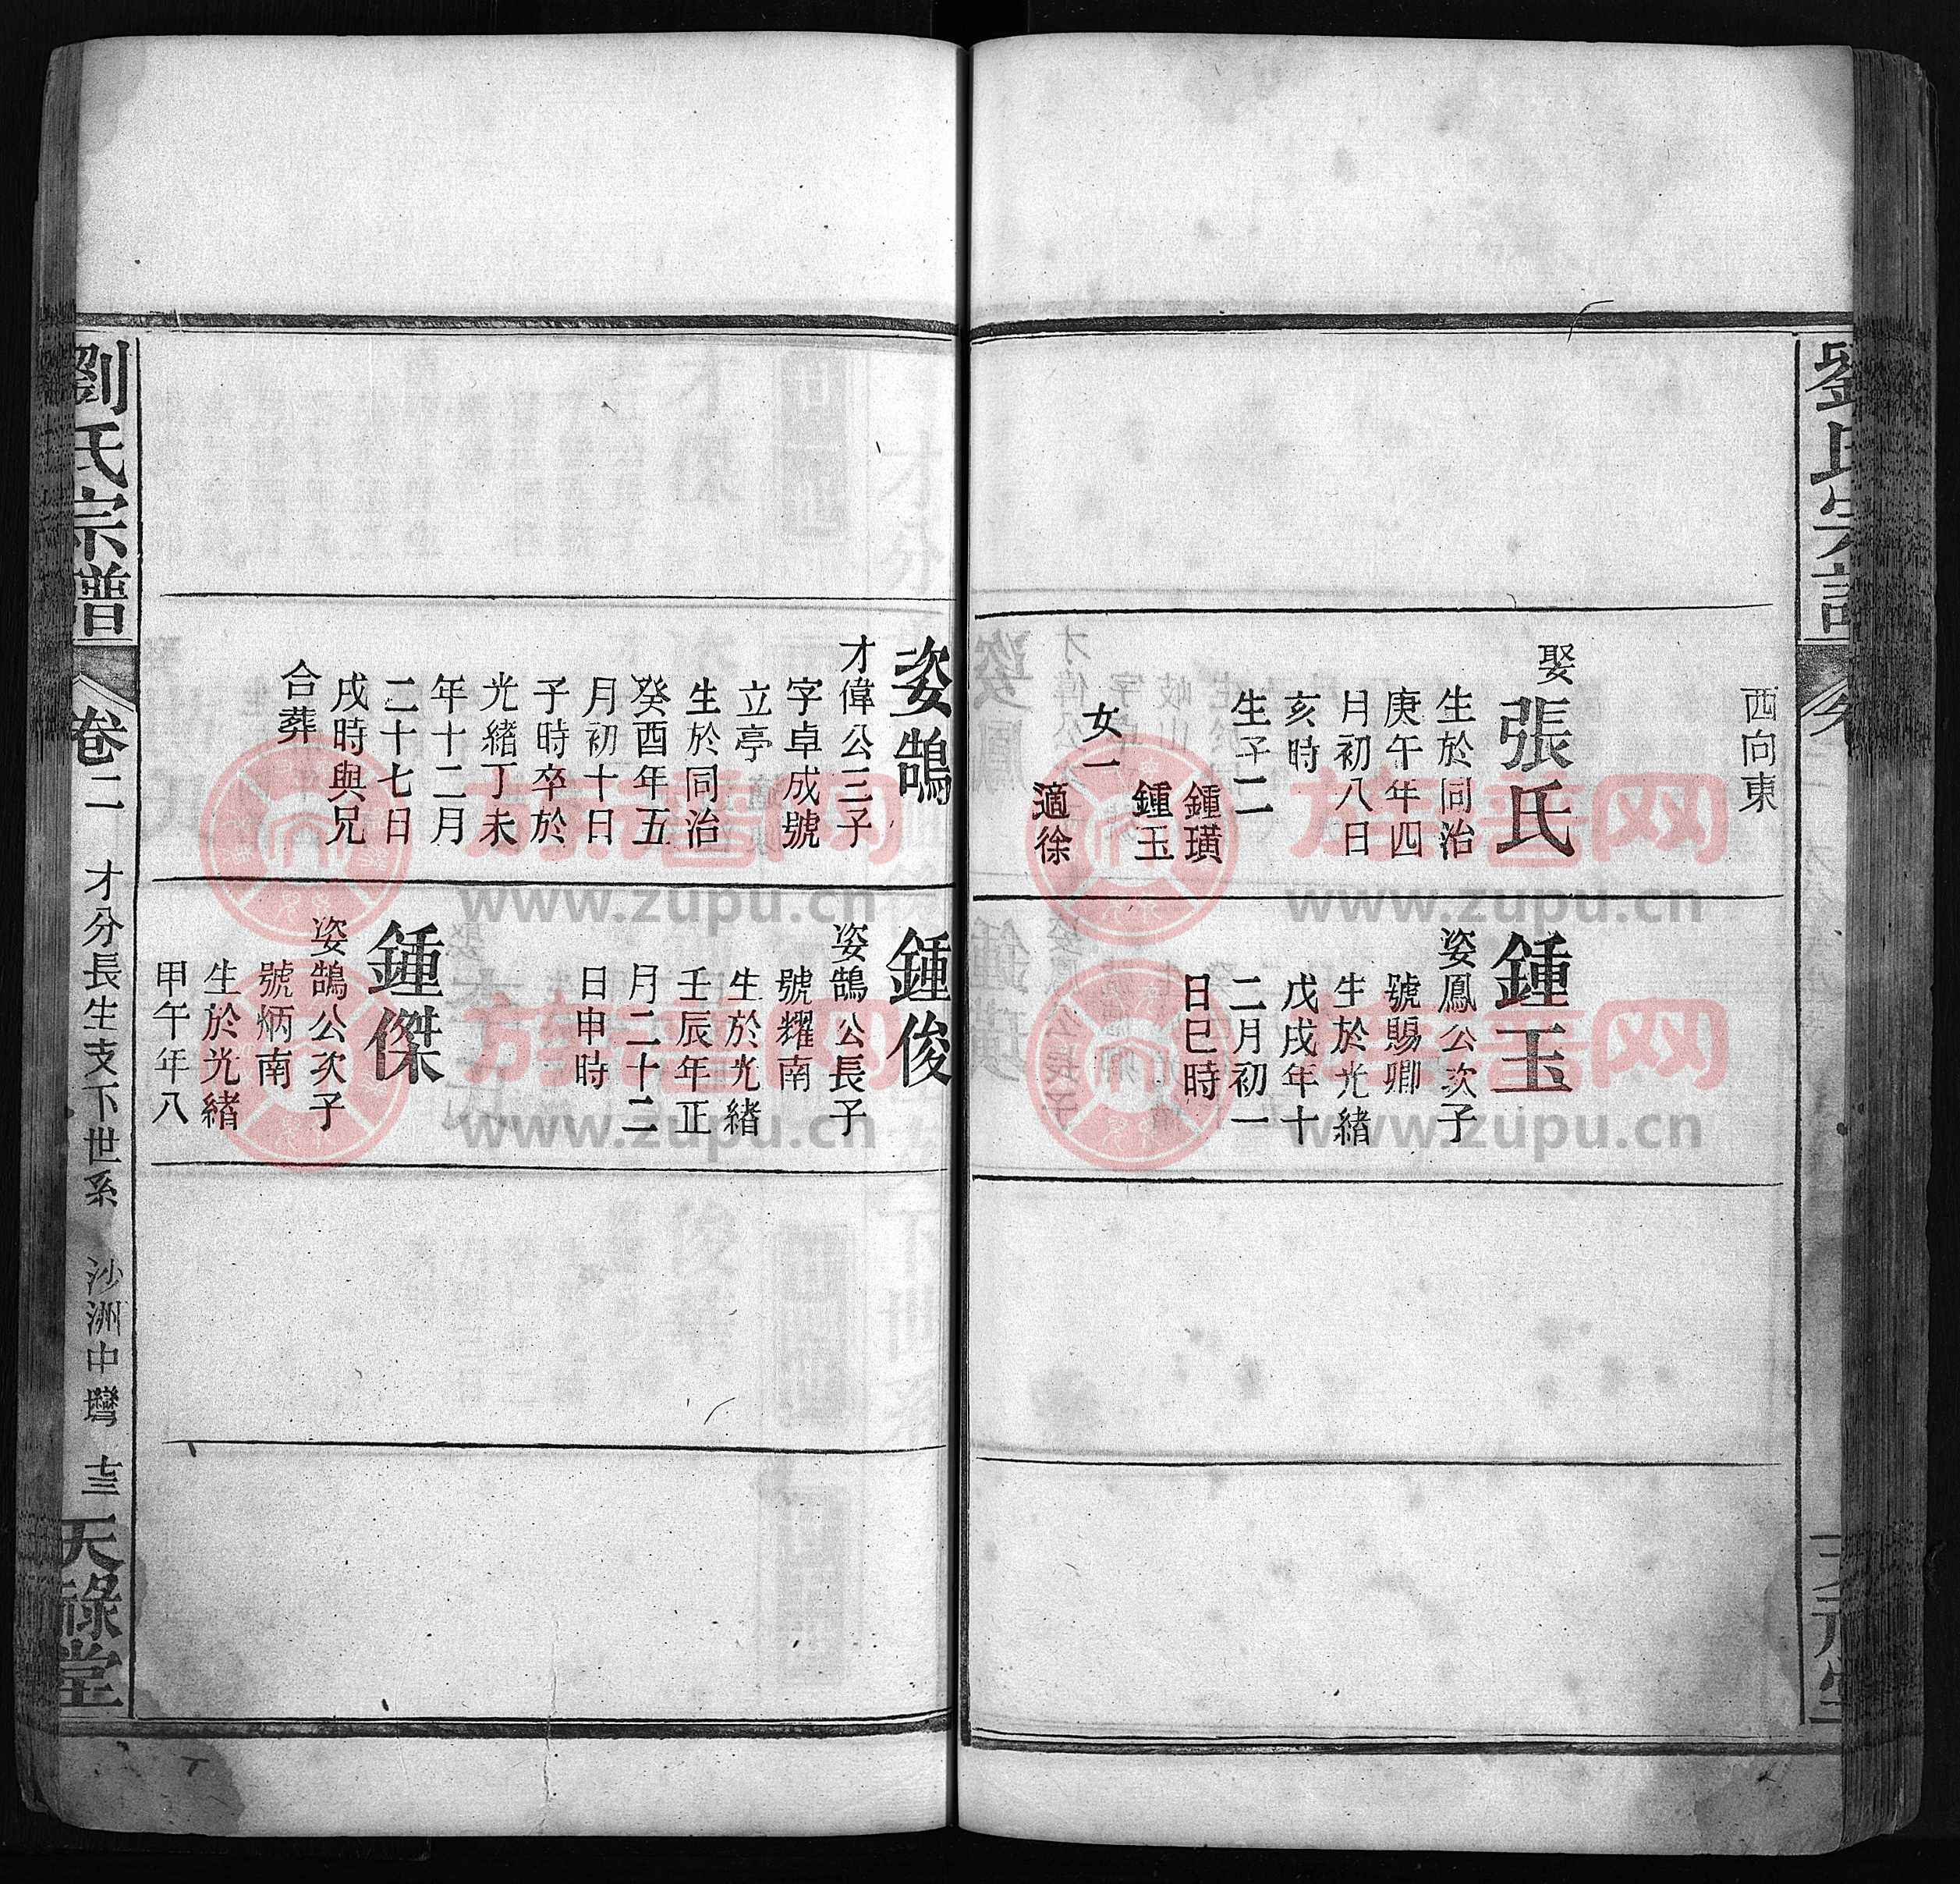 西向東
娶張氏
生於同治
庚午年四
月初八日
亥時
生子二
鍾璜
鍾玉
女一
適徐
鍾玉
姿鳳公次子
號賜卿
生於光緒
戊戌年十
二月初一
日巳時
姿鵠
才偉公三子
字卓成號
立亭
生於同治
癸酉年五
月初十日
子時卒於
光緒丁未
年十二月
二十七日
戌時與兄
合葬
鍾俊
姿鵠公長子
號耀南
生於光緒
壬辰年正
月二十二
日申時
鍾傑
姿鵠公次子
號炳南
生於光緒
甲午年八
劉氏宗譜 卷二 才分長生支下世系 沙洲中灣 十三 天祿堂
族譜网
www.zupu.cn
族譜网
www.zupu.cn
族譜网
www.zupu.cn
族譜网
www.zupu.cn